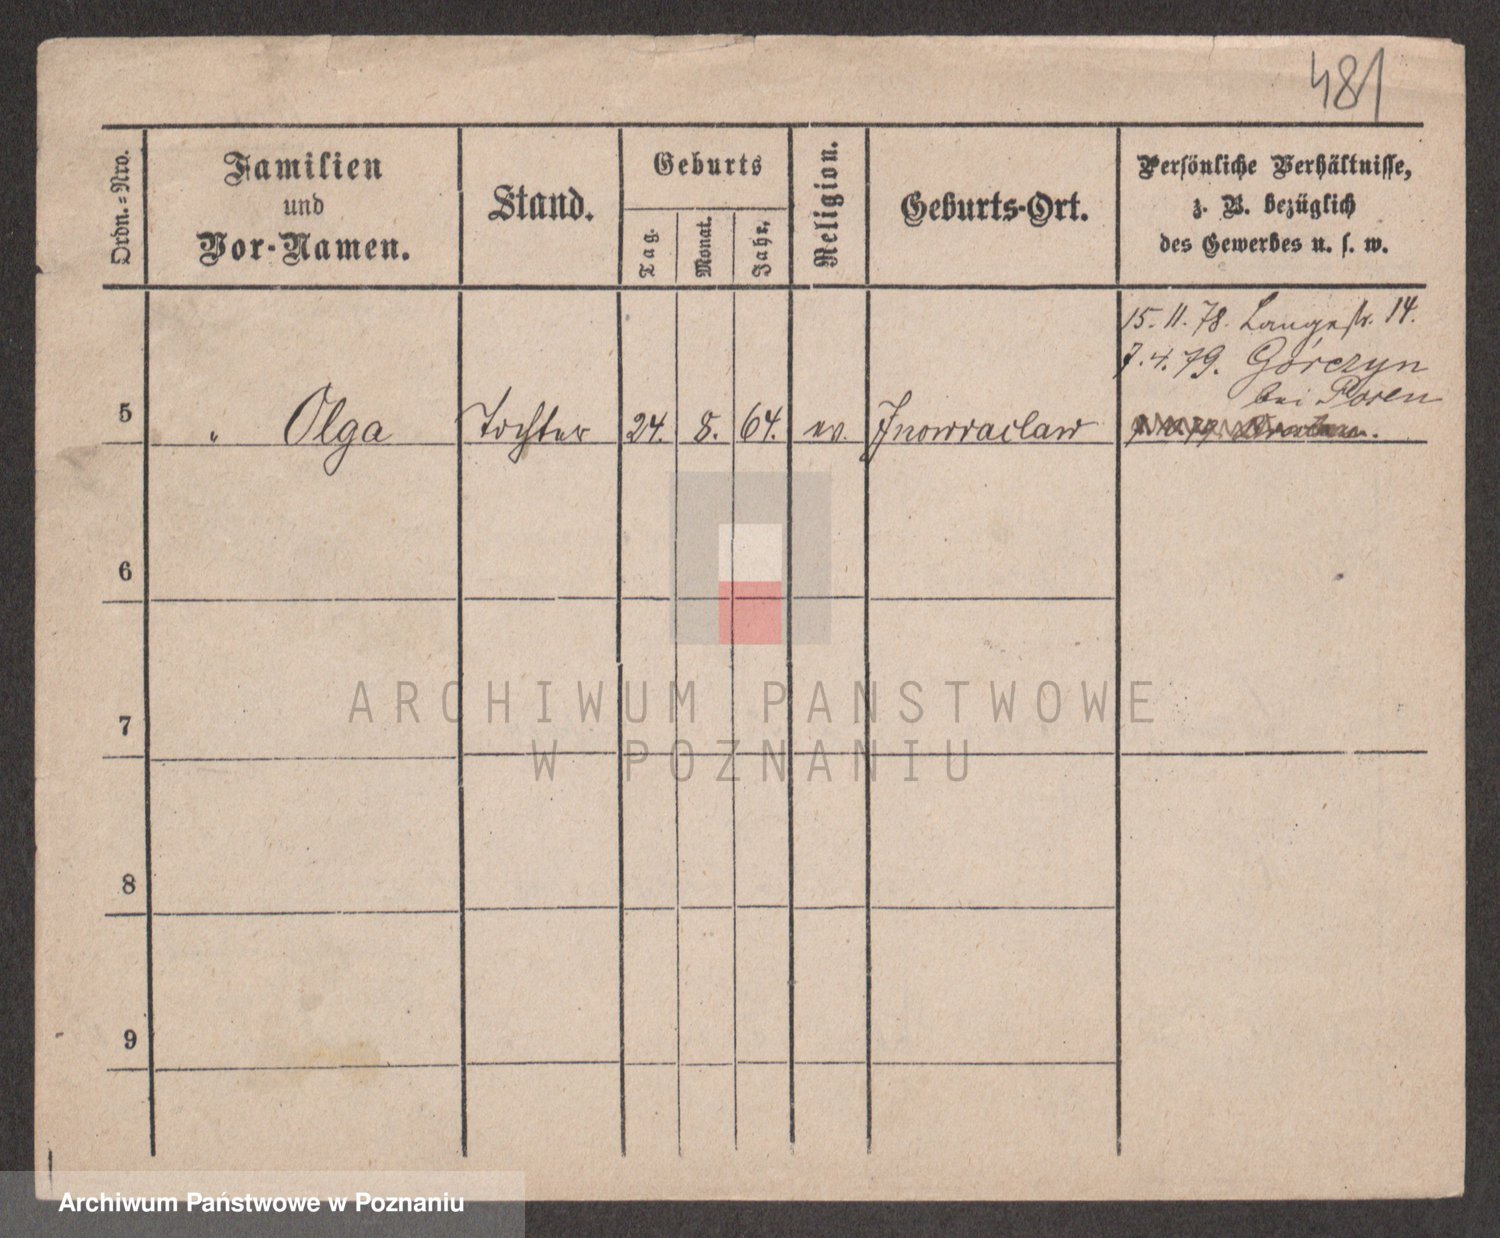 481
Ordn.-Nro.
Familien
und
Vor-Namen.
Stand.
Geburts
Tag.
Monat.
Jahr.
Religion.
Geburts-Ort.
Persönliche Verhältnisse,
z. B. bezüglich
des Gewerbes u. s. w.
15. 11. 78. Langestr. 14.
7. 4. 79. Górczyn
bei Posen
5 " Olga Tochter 24. 8. 64. ev. Inowraclaw
6
7
8
9
ARCHIWUM PANSTWOWE
W POZNANIU
Archiwum Państwowe w Poznaniu